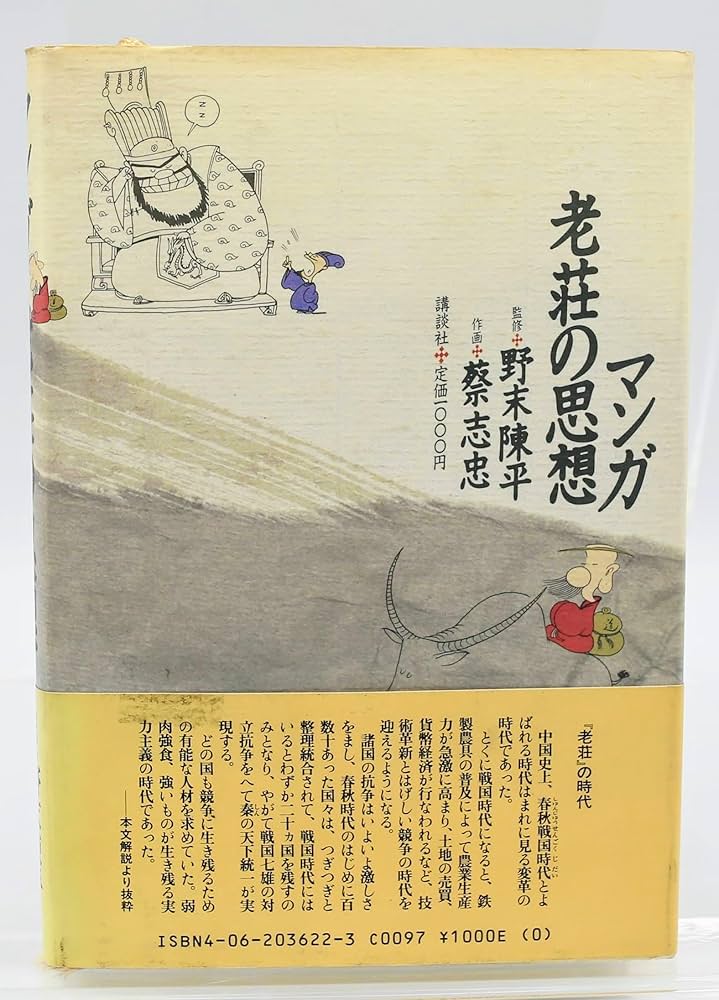 マンガ
老荘の思想
監修✣野末陳平
作画✣蔡志忠
講談社✣定価一〇〇〇円
ZZ
道
『老荘』の時代
中国史上、春秋戦国時代とよ
ばれる時代はまれに見る変革の
時代であった。
とくに戦国時代になると、鉄
製農具の普及によって農業生産
力が急激に高まり、土地の売買、
貨幣経済が行なわれるなど、技
術革新とはげしい競争の時代を
迎えるようになる。
諸国の抗争はいよいよ激しさ
をまし、春秋時代のはじめに百
数十あった国々は、つぎつぎと
整理統合されて、戦国時代には
いるとわずか二十ヵ国を残すの
みとなり、やがて戦国七雄の対
立抗争をへて秦の天下統一が実
現する。
どの国も競争に生き残るため
の有能な人材を求めていた。弱
肉強食、強いものが生き残る実
力主義の時代であった。
――本文解説より抜粋
ISBN4-06-203622-3 C0097 ¥1000E (0)